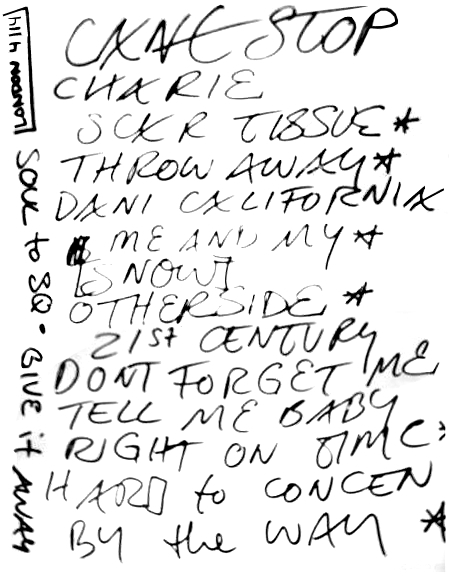 CANT STOP
CHARIE
SCAR TISSUE *
THROW AWAY *
DANI CALIFORNIA
ME AND MY *
[SNOW]
OTHERSIDE *
21ST CENTURY
DONT FORGET ME
TELL ME BABY
RIGHT ON TIME
HARD to CONCEN
BY the WAY *
SOUL to SQ • GIVE it AWAY
LONDON